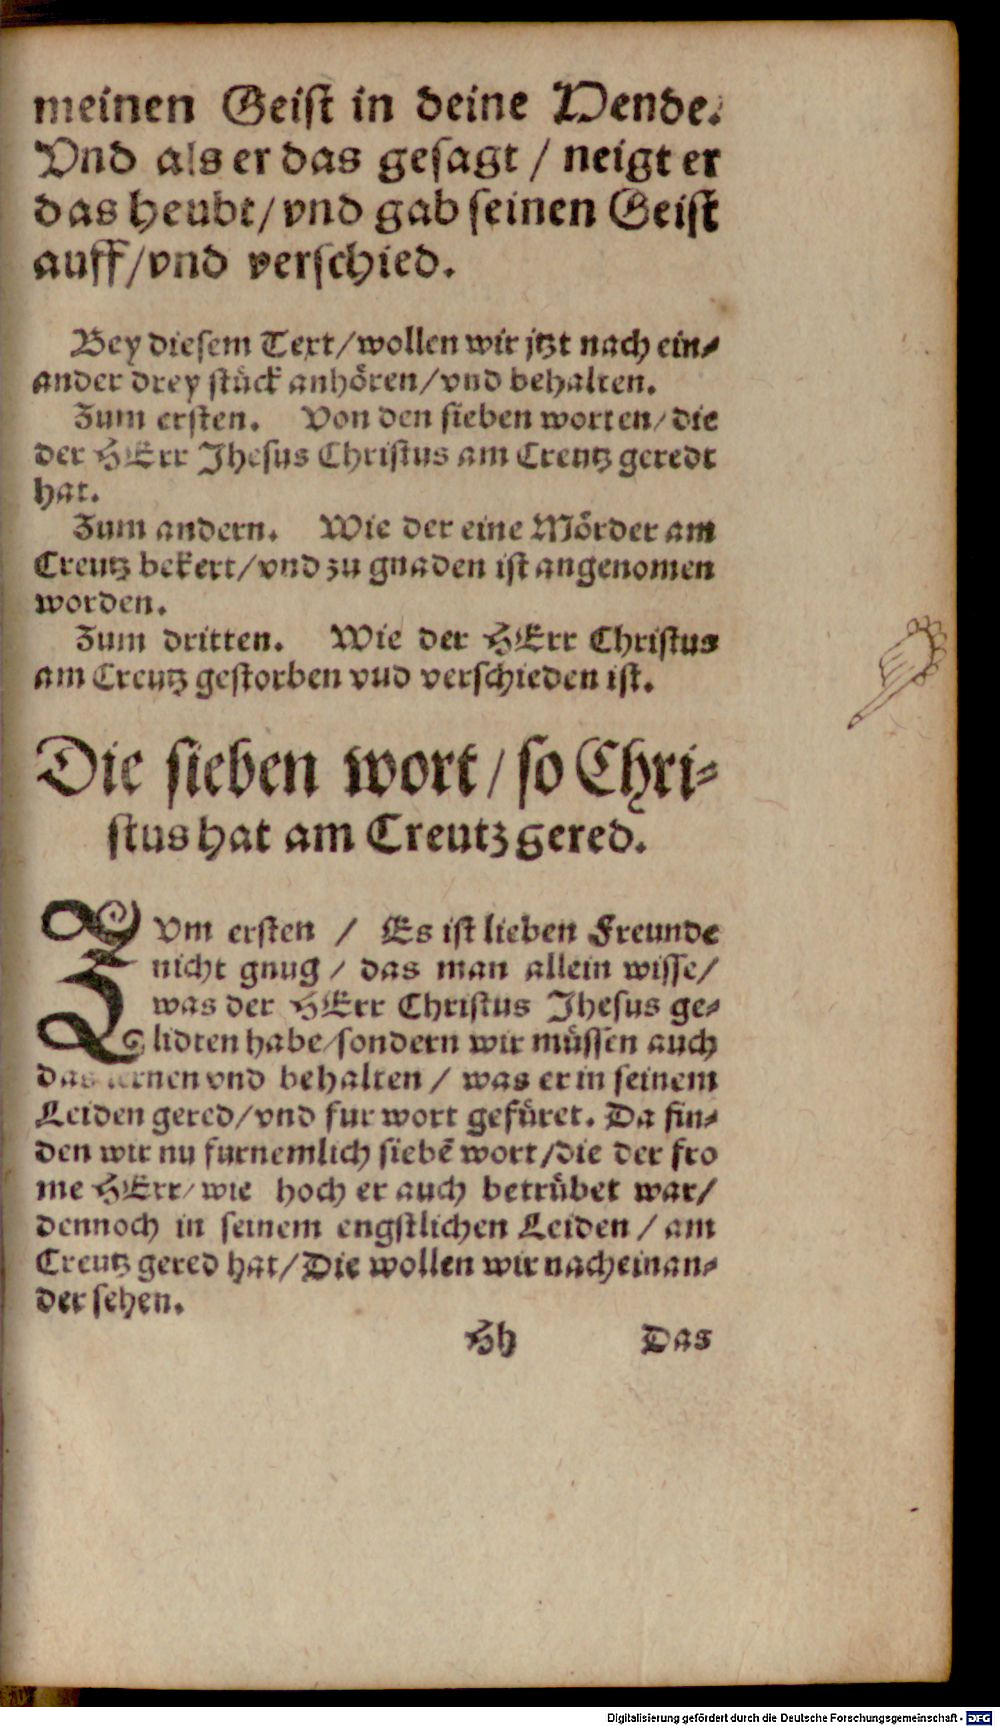 meinen Geist in deine Hende.
Vnd als er das gesagt / neigt er
das heubt / vnd gab seinen Geist
auff / vnd verschied.
Bey diesem Text / wollen wir jtzt nach ein⸗
ander drey stück anhören / vnd behalten.
Zum ersten. Von den sieben worten / die
der HErr Jhesus Christus am Creutz geredt
hat.
Zum andern. Wie der eine Mörder am
Creutz bekert / vnd zu gnaden ist angenomen
worden.
Zum dritten. Wie der HErr Christus
am Creutz gestorben vnd verschieden ist.
Die sieben wort / so Chri⸗
stus hat am Creutz gered.
ZVm ersten / Es ist lieben Freunde
nicht gnug / das man allein wisse /
was der HErr Christus Jhesus ge⸗
lidten habe / sondern wir müssen auch
das lernen vnd behalten / was er in seinem
Leiden gered / vnd fur wort gefüret. Da fin⸗
den wir nu furnemlich siebẽ wort / die der fro
me HErr / wie hoch er auch betrübet war /
dennoch in seinem engstlichen Leiden / am
Creutz gered hat / Die wollen wir nacheinan⸗
der sehen.
Hh Das
Digitalisierung gefördert durch die Deutsche Forschungsgemeinschaft - DFG